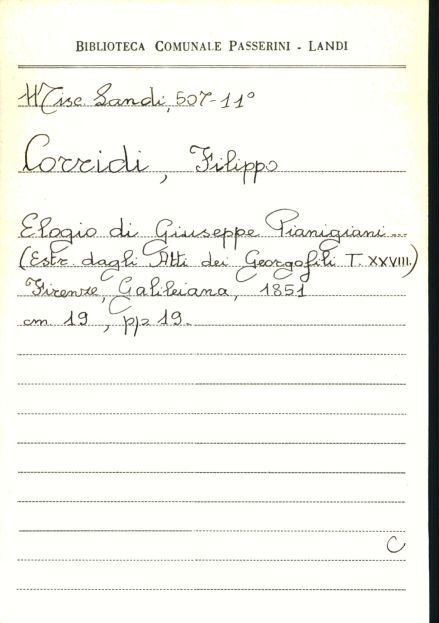 BIBLIOTECA COMUNALE PASSERINI - LANDI
Misc. Landi, 507-11°
Corridi, Filippo
Elogio di Giuseppe Pianigiani...
(Estr. dagli Atti dei Georgofili T. XXVIII.)
Firenze, Galileiana, 1851
cm. 19, pp. 19.
C